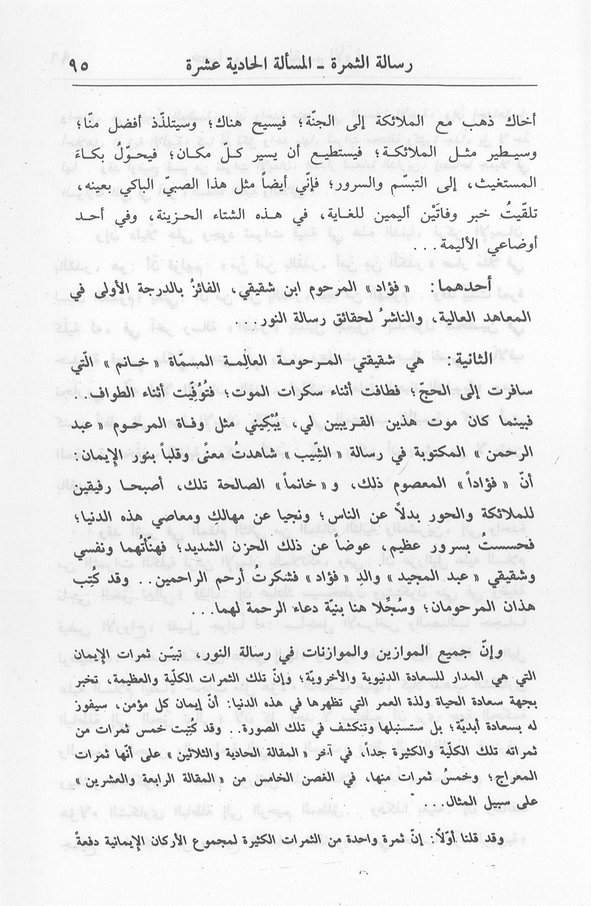 رسالة الثمرة - المسألة الحادية عشرة ٩٥
أخاك ذهب مع الملائكة إلى الجنّة؛ فيسيح هناك؛ وسيتلذّذ أفضل منّا؛
وسيطير مثل الملائكة؛ فيستطيع أن يسير كلّ مكان؛ فيحوّلُ بكاءَ
المستغيث، إلى التبسّم والسرور؛ فإنّي أيضاً مثل هذا الصبيّ الباكي بعينه،
تلقّيتُ خبر وفاتَيْن أليمين للغاية، في هذه الشتاء الحزينة، وفي أحد
أوضاعي الأليمة...
أحدهما: «فؤاد» المرحوم ابن شقيقي، الفائزُ بالدرجة الأولى في
المعاهد العالية، والناشرُ لحقائق رسالة النور...
الثانية: هي شقيقتي المرحومة العالِمة المسمّاة «خانم» الّتي
سافرت إلى الحجّ؛ فطافت أثناء سكرات الموت؛ فتُوُفِّيت أثناء الطواف..
فبينما كان موت هذين القريبين لي، يُبْكِيني مثل وفاة المرحوم «عبد
الرحمن» المكتوبة في رسالة «الشِّيب» شاهدتُ معنًى وقلباً بنور الإيمان:
أنّ «فؤاداً» المعصوم ذلك، و«خانماً» الصالحة تلك، أصبحا رفيقين
للملائكة والحور بدلاً عن الناس؛ ونجيا عن مهالك ومعاصي هذه الدنيا؛
فحسستُ بسرور عظيم، عوضاً عن ذلك الحزن الشديد؛ فهنّأتُهما ونفسي
وشقيقي «عبد المجيد» والدِ «فؤاد» فشكرتُ أرحم الراحمين.. وقد كتِب
هذان المرحومان؛ وسُجِّلا هنا بنيّة دعاء الرحمة لهما...
وإنّ جميع الموازين والموازنات في رسالة النور، تبيّن ثمرات الإيمان
التي هي المدار للسعادة الدنيوية والأخرويّة؛ وإنّ تلك الثمرات الكلّية والعظيمة، تخبر
بجهة سعادة الحياة ولذة العمر التي تظهرها في هذه الدنيا: أنّ إيمان كل مؤمن، سيفوز
له بسعادة أبديّة؛ بل ستسنبلها وتنكشف في تلك الصورة.. وقد كتِبت خمس ثمرات من
ثمراته تلك الكلّية والكثيرة جداً، في آخر «المقالة الحادية والثلاثين» على أنّها ثمرات
المعراج؛ وخمسُ ثمرات منها، في الغصن الخامس من «المقالة الرابعة والعشرين»
على سبيل المثال...
وقد قلنا أوّلاً: إنّ ثمرة واحدة من الثمرات الكثيرة لمجموع الأركان الإيمانية دفعةً